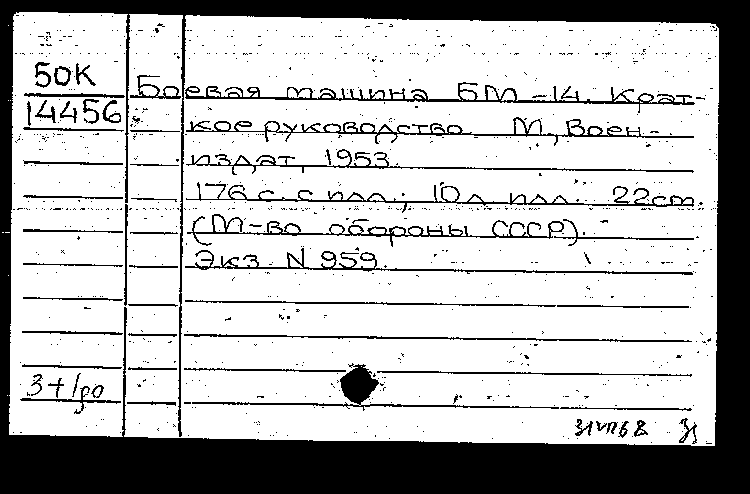 50К
14456
Боевая машина БМ-14. Крат-
кое руководство. М., Воен-
издат, 1953.
176 с. с илл.; 10 л. илл. 22 cm.
(М-во обороны СССР).
Экз. N 959
3+1